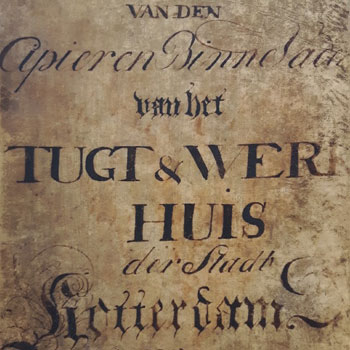 VAN DEN
Apieren Binne
van het
TUGT & WER
HUIS
der Stadt
Rotterdam.